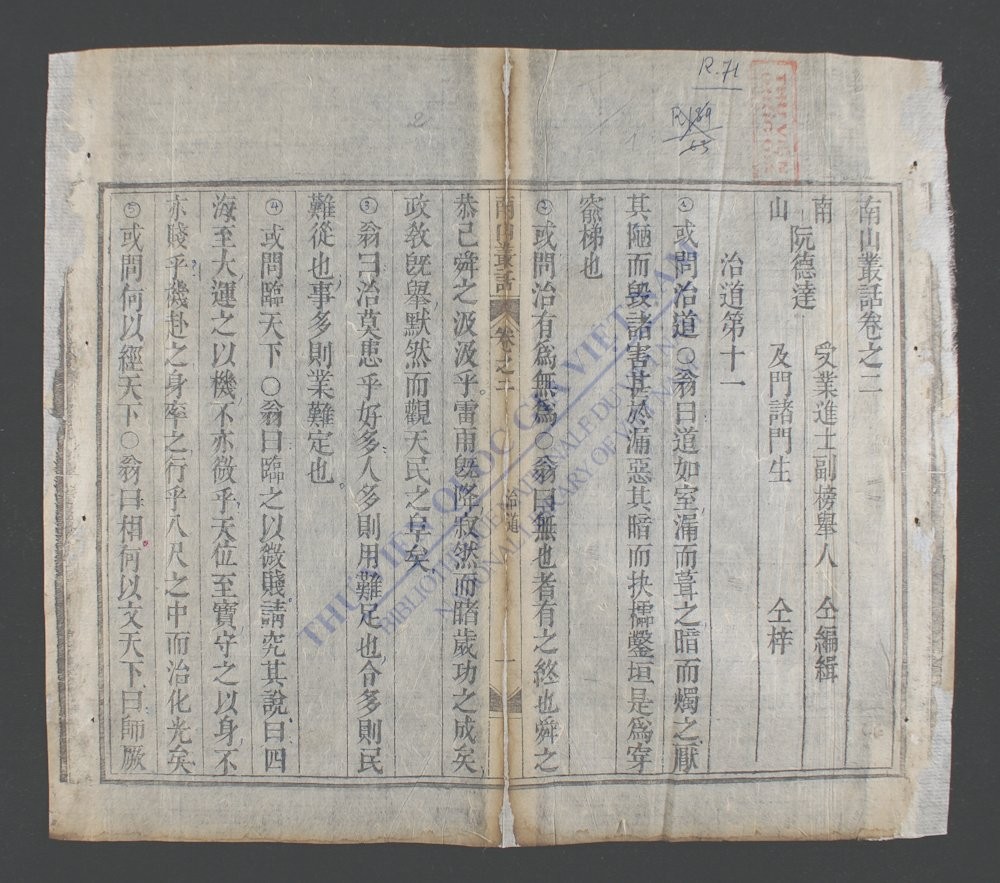 R.71
南山叢話卷之二
南山 阮德達 受業進士副榜舉人 仝編緝
及門諸門生 仝梓
治道第十一
①或問治道○翁曰道如室漏而葺之暗而燭之厭
其陋而毀諸害甚於漏惡其暗而抉櫺鑿垣是爲穿
窬梯也
②或問治有爲無爲○翁曰無也者有之終也舜之
南山叢話 卷之二 治道 一
恭己舜之汲汲乎雷雨旣降寂然而睹歲功之成矣
政敎旣舉默然而觀天民之阜矣
③翁曰治莫患乎好多人多則用難足也令多則民
難從也事多則業難定也
④或問臨天下○翁曰臨之以微賤請究其說曰四
海至大運之以機不亦微乎天位至寶守之以身不
亦賤乎機赴之身率之行乎八尺之中而治化光矣
⑤或問何以經天下○翁曰相何以文天下曰師厥
THƯ VIỆN QUỐC GIA VIỆT NAM
BIBLIOTHEQUE NATIONALE DU VIETNAM
NATIONAL LIBRARY OF VIETNAM
2
1